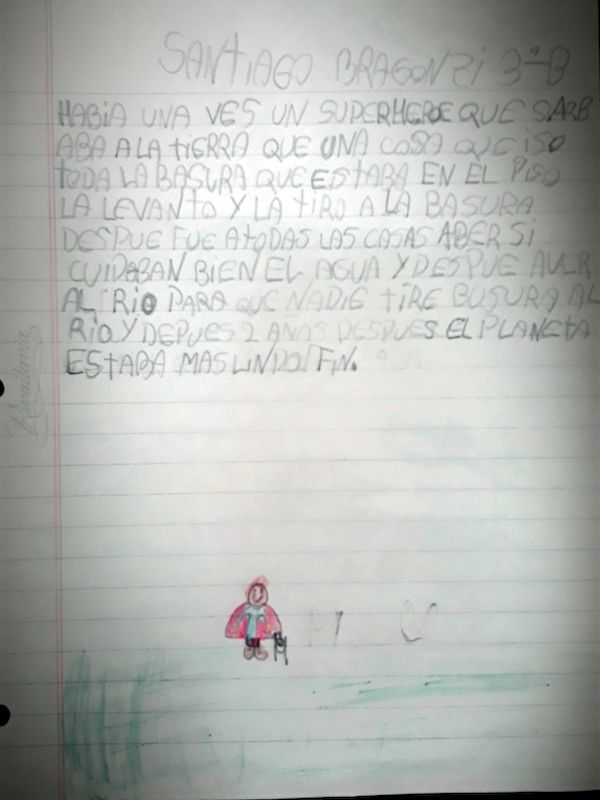 SANTIAGO BRAGONZI 3ª B
HABIA UNA VES UN SUPERHEROE QUE SARB
ABA A LA TIERRA QUE UNA COSA QUE ISO
TODA LA BASURA QUE ESTABA EN EL PISO
LA LEVANTO Y LA TIRO A LA BASURA
DESPUE FUE ATODAS LAS CASAS ABER SI
CUIDABAN BIEN EL AGUA Y DESPUE AVER
AL RIO PARA QUE NADIE TIRE BASURA AL
RIO Y DEPUES 2 AÑOS DESPUES EL PLANETA
ESTABA MAS LINDO FIN.
Rivadavia